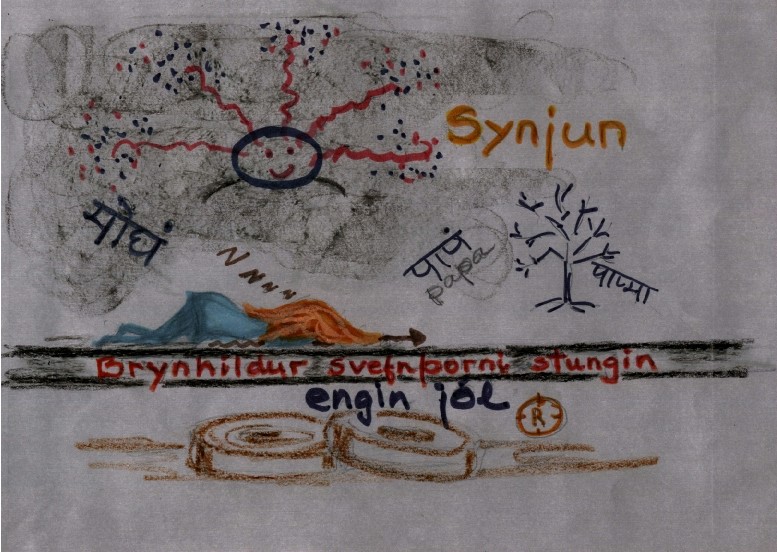 Synjun
मोघं
पापं
papa
पाप्मा
N N N N
Brynhildur svefnþorni stungin
engin jól
R